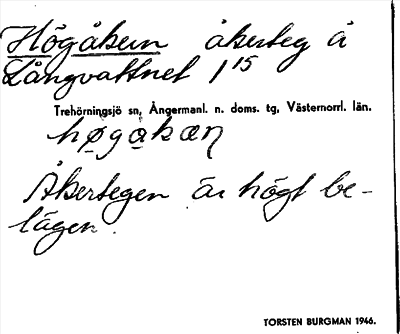 Högåkern åkerteg å
Långvattnet 1¹⁵
Trehörningsjö sn, Ångermanl. n. doms. tg, Västernorrl. län.
høgakæn
Åkertegen är högt be-
lägen.
TORSTEN BURGMAN 1946.